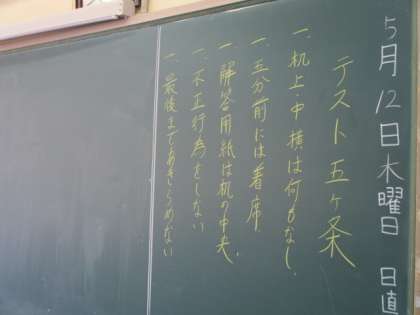 5月12日木曜日 日直
テスト五ヶ条
一、机上・中 横は何もなし.
一、五分前には着席
一、解答用紙は机の中央.
一、不正行為をしない
一、最後まであきらめない